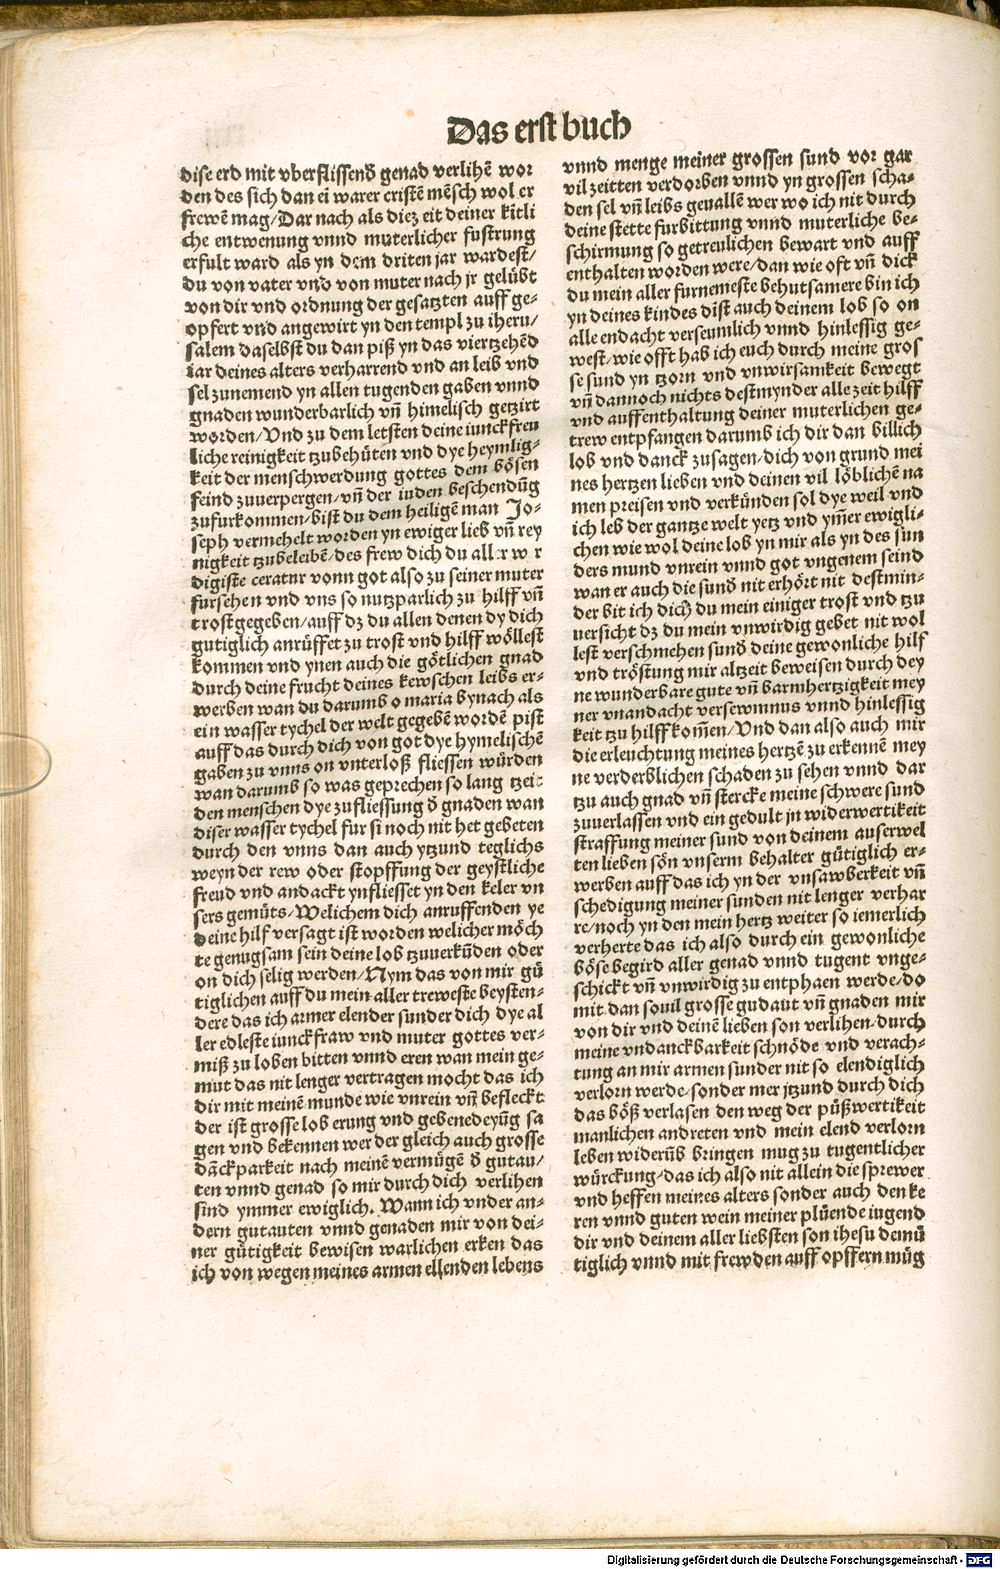 Das erst buch
dise erd mit vberflissend̄ genad verlihē wor
den des sich dan ei warer cristē mēsch wol er
frewē mag/Dar nach als diez eit deiner kitli
che entwenung vnnd muterlicher fustrung
erfult ward als yn dem driten jar wardest/
du von vater vnd von muter nach jr gelübt
von dir vnd ordnung der gesatzten auff ge-
opfert vnd angewirt yn den templ zu iheru/
salem daselbst du dan piß yn das viertzehēd
iar deines alters verharrend vnd an leib vnd
sel zunemend yn allen tugenden gaben vnnd
gnaden wunderbarlich vn̄ himelisch getzirt
worden/Vnd zu dem letsten deine iunckfreu
liche reinigkeit tzubehüten vnd dye heymlig-
keit der menschwerdung gottes dem bösen
feind zuuerpergen/vn̄ der iuden beschendūg
zufurkommen/bist du dem heiligē man Jo-
seph vermehelt worden yn ewiger lieb vn̄ rey
nigkeit tzubeleibē/des frew dich du all r w r
digiste ceratur vonn got also zu seiner muter
fursehen vnd vns so nutzparlich zu hilff vn̄
trost gegeben/auff dz du allen denen dy dich
gutiglich anrüffet zu trost vnd hilff wöllest
kommen vnd ynen auch die götlichen gnad
durch deine frucht deines kewschen leibs er-
werben wan du darumb o maria bynach als
ein wasser tychel der welt gegebē wordē pist
auff das durch dich von got dye hymelischē
gaben zu vnns on vnterloß fliessen würden
wan darumb so was geprechen so lang tzeit
den menschen dye zufliessung d̄ gnaden wan
diser wasser tychel fur si noch nit het gebeten
durch den vnns dan auch ytzund teglichs
weyn der rew oder stopffung der geystliche
freud vnd andackt ynfliesset yn den keler vn
sers gemüts/Welichem dich anruffenden ye
deine hilf versagt ist worden welicher möch
te genugsam sein deine lob tzuuerkūden oder
on dich selig werden/Nym das von mir gü
tiglichen auff du mein aller treweste beysten-
dere das ich armer elender sunder dich dye al
ler edleste iunckfraw vnd muter gottes ver-
miß zu loben bitten vnnd eren wan mein ge-
mut das nit lenger vertragen mocht das ich
dir mit meinē munde wie vnrein vn̄ befleckt
der ist grosse lob erung vnd gebenedeyūg sa
gen vnd bekennen wer der gleich auch grosse
dāckparkeit nach meinē vermügē d̄ gutau/
ten vnnd genad so mir durch dich verlihen
sind ymmer ewiglich. Wann ich vnder an-
dern gutauten vnnd genaden mir von dei-
ner gütigkeit bewisen warlichen erken das
ich von wegen meines armen ellenden lebens
vnnd menge meiner grossen sund vor gar
vil zeitten verdorben vnnd yn grossen scha-
den sel vn̄ leibs geuallē wer wo ich nit durch
deine stette furbittung vnnd muterliche be-
schirmung so getreulichen bewart vnd auff
enthalten worden were/dan wie oft vn̄ dick
du mein aller furnemeste behutsamere bin ich
yn deines kindes dist auch deinem lob so on
alle endacht verseumlich vnnd hinlessig ge-
west/wie offt hab ich euch durch meine gros
se sund yn tzorn vnd vnwirsamkeit bewegt
vn̄ dannoch nichts destmynder alle zeit hilff
vnd auffenthaltung deiner muterlichen ge-
trew entpfangen darumb ich dir dan billich
lob vnd danck zusagen/dich von grund mei
nes hertzen lieben vnd deinen vil löblichē na
men preisen vnd verkünden sol dye weil vnd
ich leb der gantze welt yetz vnd ym̄er ewigli-
chen wie wol deine lob yn mir als yn des sun
ders mund vnrein vnnd got vngenem seind
wan er auch die sund̄ nit erhört nit destmin-
der bit ich dich du mein einiger trost vnd tzu
uersicht dz du mein vnwirdig gebet nit wol
lest verschmehen sund̄ deine gewonliche hilf
vnd tröstung mir altzeit beweisen durch dey
ne wunderbare gute vn̄ barmhertzigkeit mey
ner vnandacht versewmnus vnnd hinlessig
keit tzu hilff kom̄en/Vnd dan also auch mir
die erleuchtung meines hertzē zu erkennē mey
ne verderblichen schaden zu sehen vnnd dar
tzu auch gnad vn̄ stercke meine schwere sund
zuuerlassen vnd ein gedult jn widerwertikeit
straffung meiner sund von deinem auserwel
ten lieben sön vnserm behalter gütiglich er-
werben auff das ich yn der vnsawberkeit vn̄
schedigung meiner sunden nit lenger verhar
re/noch yn den mein hertz weiter so iemerlich
verherte das ich also durch ein gewonliche
böse begird aller genad vnnd tugent vnge-
schickt vn̄ vnwirdig zu entphaen werde/do
mit dan souil grosse gudaut vn̄ gnaden mir
von dir vnd deinē lieben son verlihen/durch
meine vndanckbarkeit schnöde vnd verach-
tung an mir armen sunder nit so elendiglich
verlorn werde/sonder mer jtzund durch dich
das böß verlasen den weg der püßwertikeit
manlichen andreten vnd mein elend verlorn
leben widerūb bringen mug zu tugentlicher
würckung/das ich also nit allein die sprewer
vnd heffen meines alters sonder auch den ke
ren vnnd guten wein meiner plüende iugend
dir vnd deinem aller liebsten son ihesu demü
tiglich vnnd mit frewden auff opffern müg
Digitalisierung gefördert durch die Deutsche Forschungsgemeinschaft - DFG